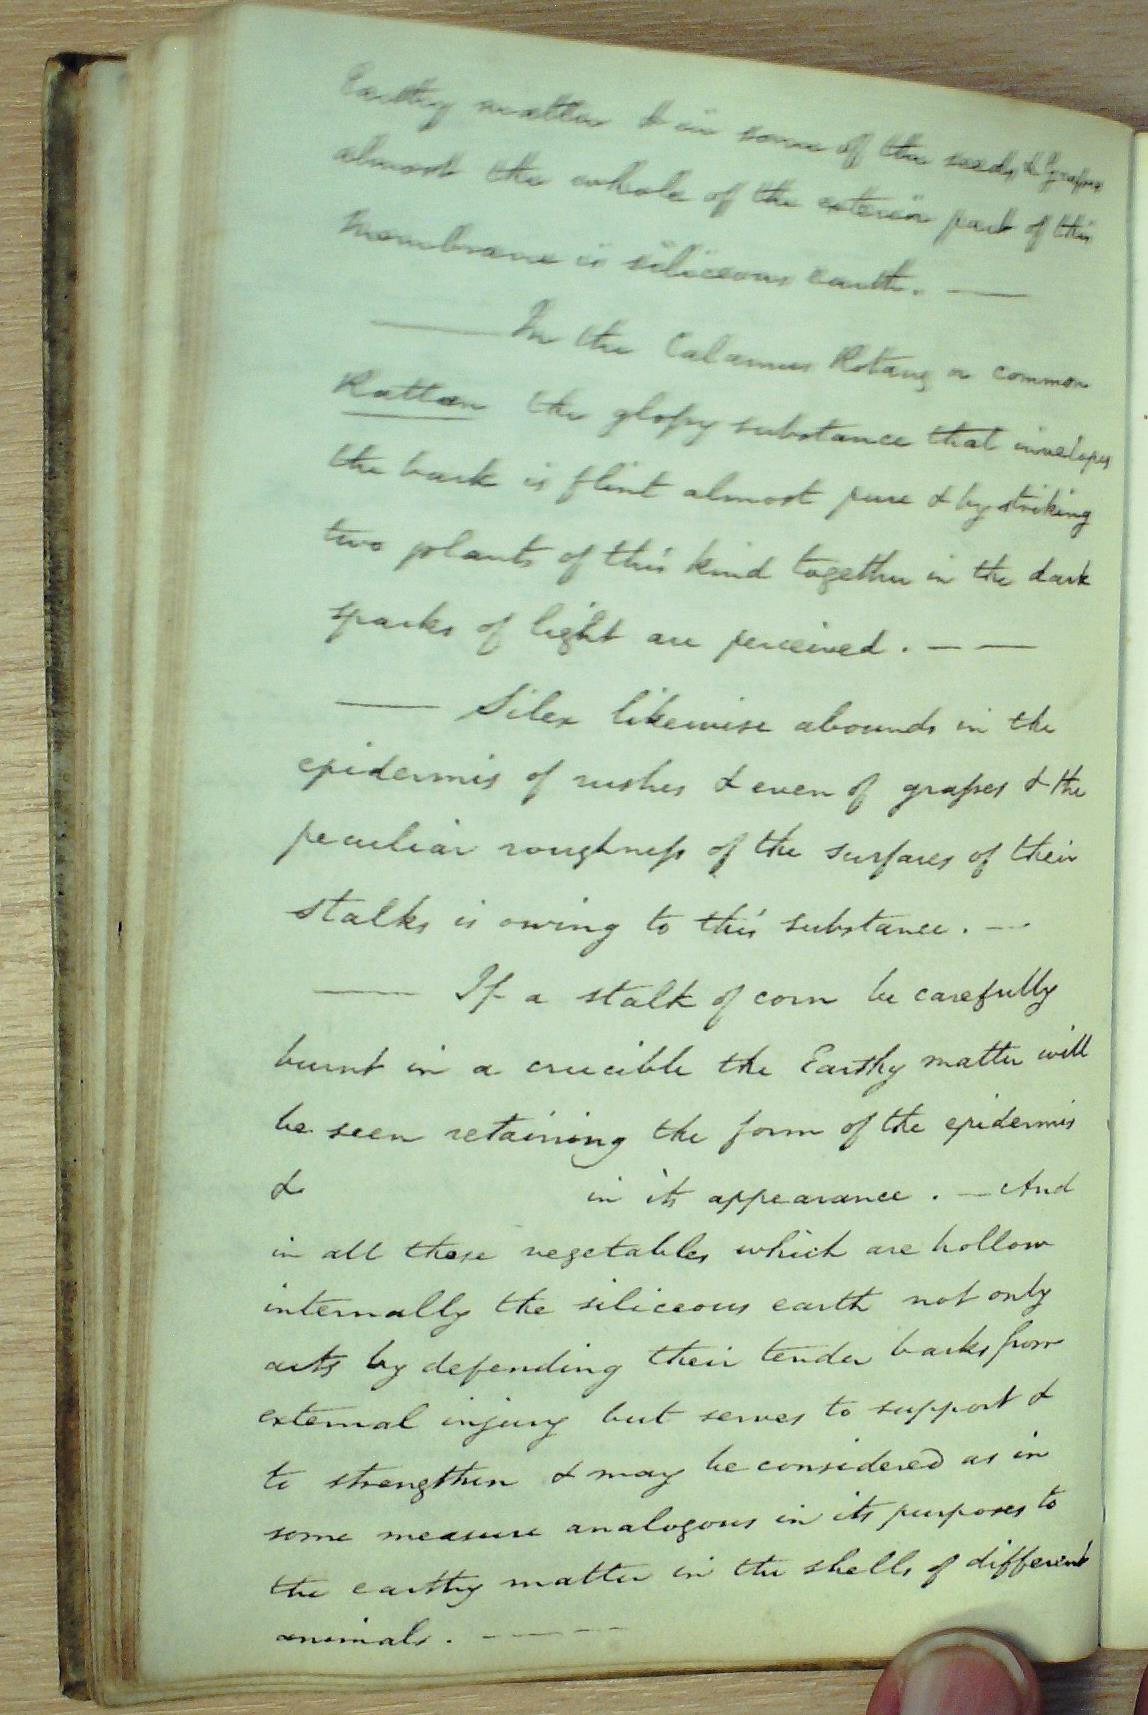 Earthy matter & in some of the reeds & Grasses
almost the whole of the exterior part of this
Membrane is siliceous earth. —
— In the Calamus Rotang or common
Rattan the glossy substance that invelopes
the bark is flint almost pure & by striking
two plants of this kind together in the dark
sparks of light are perceived. — —
— Silex likewise abounds in the
epidermis of rushes & even of grasses & the
peculiar roughness of the surfaces of their
stalks is owing to this substance. —
— If a stalk of corn be carefully
burnt in a crucible the Earthy matter will
be seen retaining the form of the epidermis
& in its appearance. — And
in all these vegetables which are hollow
internally the siliceous earth not only
acts by defending their tender barks from
external injury but serves to support &
to strengthen & may be considered as in
some measure analogous in its purposes to
the earthy matter in the shells of different
animals. — — — —